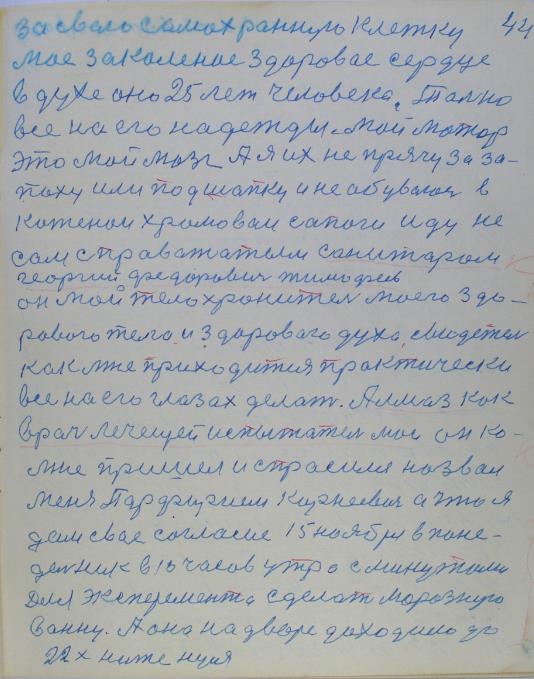 44
за свою самохранную клетку
мое закаленое здоровае сердце
в духе оно 25 лет человека. Толко
все на его надежды. мой мотор
это мой мозг А я их не прячу за за-
паху или под шапку и не обуваюся в
кожеnои хромоваи сапоги иду не
сам с праважатым санитаром
георгий федорович тимофев
он мой телохранител моего здо-
рового тела и здороваго духа, свидетел
как мне приходится практически
все на его глазах делат. Алмаз как
врач лечещей испытател мои он ко
мне пришел и спрасился назвал
меня Парфирием Карнеевич а что я
дам свае согласие 15 ноября в поне-
делник в 10 часов утра с минутами
для эксперемента сделат морозную
ванну. А она на дворе даходило до
22 х ниже нуля